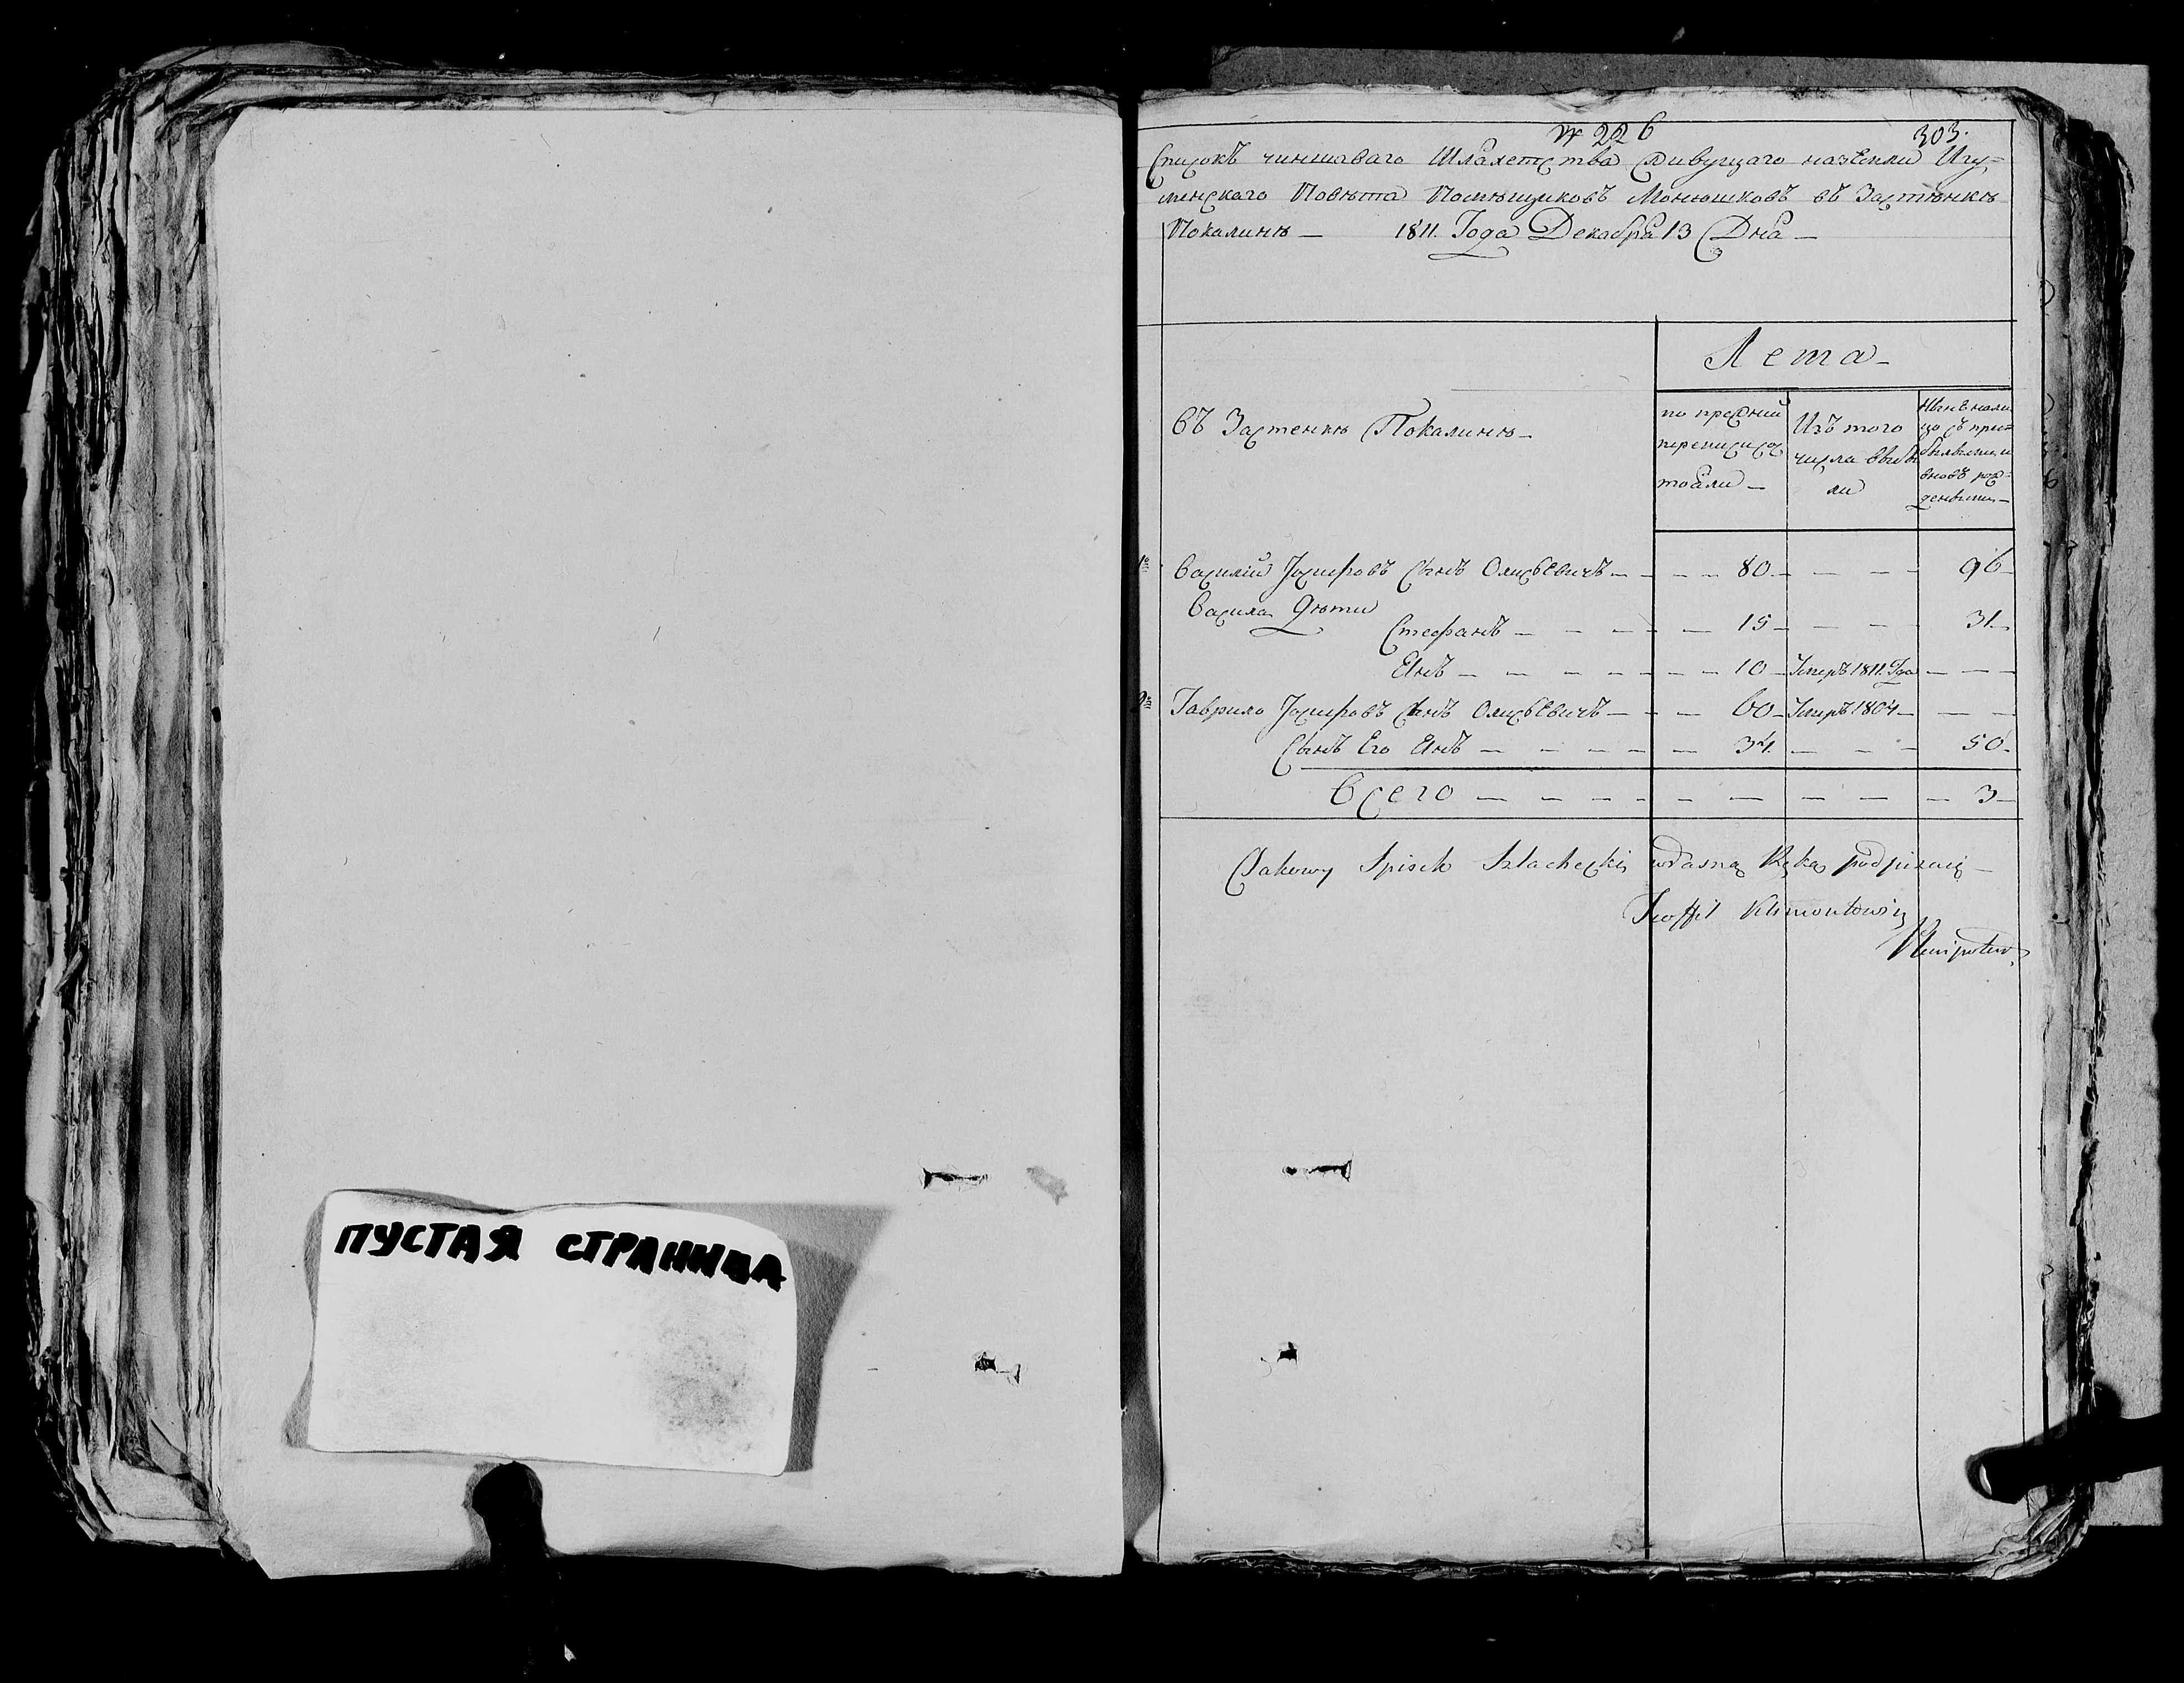 ПУСТАЯ СТРАНИЦА
№ 226
303.
Списокъ чиншоваго Шляхетства живущаго на земли Игу=
менскаго Повѣта Помѣщиковъ Монюшковъ въ Застѣнкѣ
Покалинѣ — 1811. Года Декабря 13 Дня —
Лета —
въ Застенкѣ Покалинѣ —
по прежний
переписи сос
тояли —
Изъ того
числа выбы
ли
Нынѣ нали
цо съ при=
бывшими
вновь рож=
денными —
1й Василий Іосифовъ Сынъ Олисѣевичъ — — — 80 — — — — 96
Василя Дѣти
Стефанъ — — — — — 15 — — — — 31.
Янъ — — — — — — 10 — Умеръ 1811. Года — — —
2й Гаврило Іосифовъ Сынъ Олисѣевичъ — — — 60 — Умеръ 1804 — — —
Сынъ Его Янъ — — — — — — 34. — — — 50.
Всего — — — — — — — — — 3 —
Takowy Spisek Szlachecki własną Ręką podpisuię —
Teoffil Klimontowicz
Plenipotent